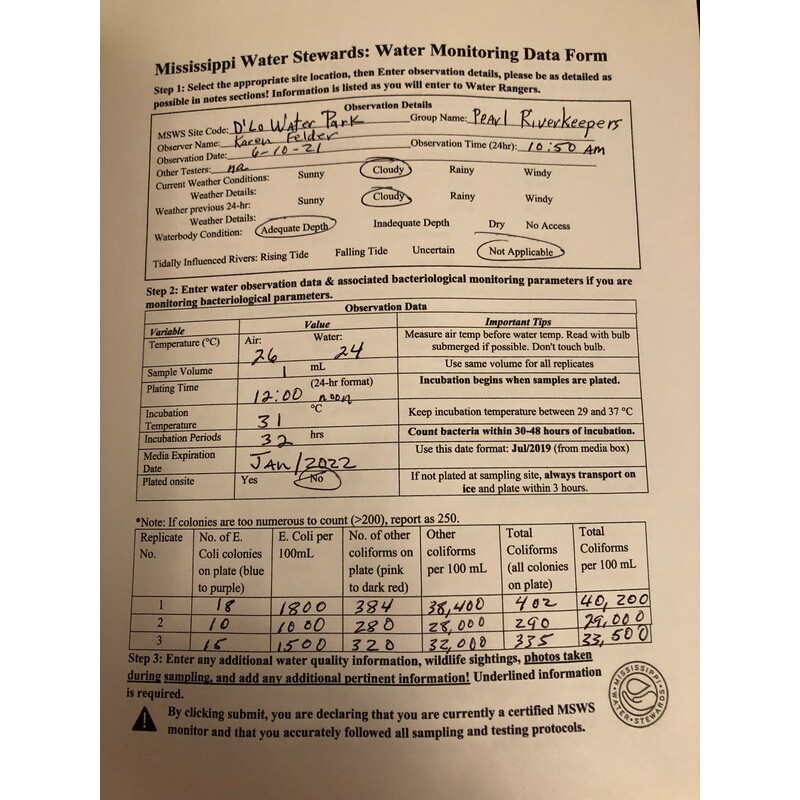 Mississippi Water Stewards: Water Monitoring Data Form
Step 1: Select the appropriate site location, then Enter observation details, please be as detailed as
possible in notes sections! Information is listed as you will enter to Water Rangers.
Observation Details
MSWS Site Code: D'Lo Water Park Group Name: Pearl Riverkeepers
Observer Name: Karen Felder
Observation Date: 6-10-21 Observation Time (24hr): 10:50 AM
Other Testers: na
Current Weather Conditions: Sunny Cloudy Rainy Windy
Weather Details:
Weather previous 24-hr: Sunny Cloudy Rainy Windy
Weather Details:
Waterbody Condition: Adequate Depth Inadequate Depth Dry No Access
Tidally Influenced Rivers: Rising Tide Falling Tide Uncertain Not Applicable
Step 2: Enter water observation data & associated bacteriological monitoring parameters if you are
monitoring bacteriological parameters.
Observation Data
Variable Value Important Tips
Temperature (°C) Air: 26 Water: 24 Measure air temp before water temp. Read with bulb
submerged if possible. Don't touch bulb.
Sample Volume 1 mL Use same volume for all replicates
Plating Time 12:00 noon (24-hr format) Incubation begins when samples are plated.
Incubation
Temperature 31 °C Keep incubation temperature between 29 and 37 °C
Incubation Periods 32 hrs Count bacteria within 30-48 hours of incubation.
Media Expiration
Date Jan/2022 Use this date format: Jul/2019 (from media box)
Plated onsite Yes No If not plated at sampling site, always transport on
ice and plate within 3 hours.
*Note: If colonies are too numerous to count (>200), report as 250.
Replicate No. No. of E. Coli colonies on plate (blue to purple) E. Coli per 100mL No. of other coliforms on plate (pink to dark red) Other coliforms per 100 mL Total Coliforms (all colonies on plate) Total Coliforms per 100 mL
1 18 1800 384 38,400 402 40,200
2 10 1000 280 28,000 290 29,000
3 15 1500 320 32,000 335 33,500
Step 3: Enter any additional water quality information, wildlife sightings, photos taken
during sampling, and add any additional pertinent information! Underlined information
is required.
By clicking submit, you are declaring that you are currently a certified MSWS
monitor and that you accurately followed all sampling and testing protocols.
MISSISSIPPI WATER STEWARDS